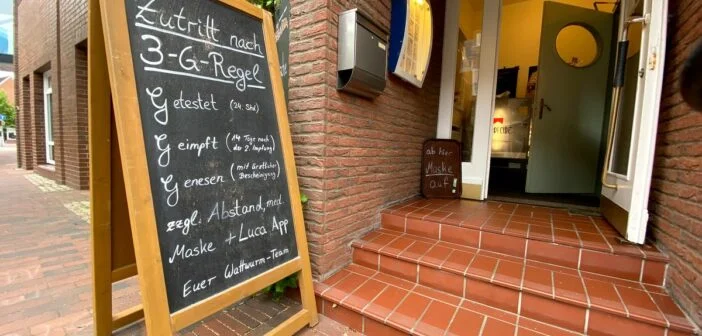 Zutritt nach
3-G-Regel
Getestet (24. Std)
Geimpft (14 Tage nach
der 2. Impfung)
Genesen (mit ärztlicher
Bescheinigung)
zzgl. Abstand, med.
Maske + Luca App
Euer Wattwurm-Team
ab hier
Maske
auf